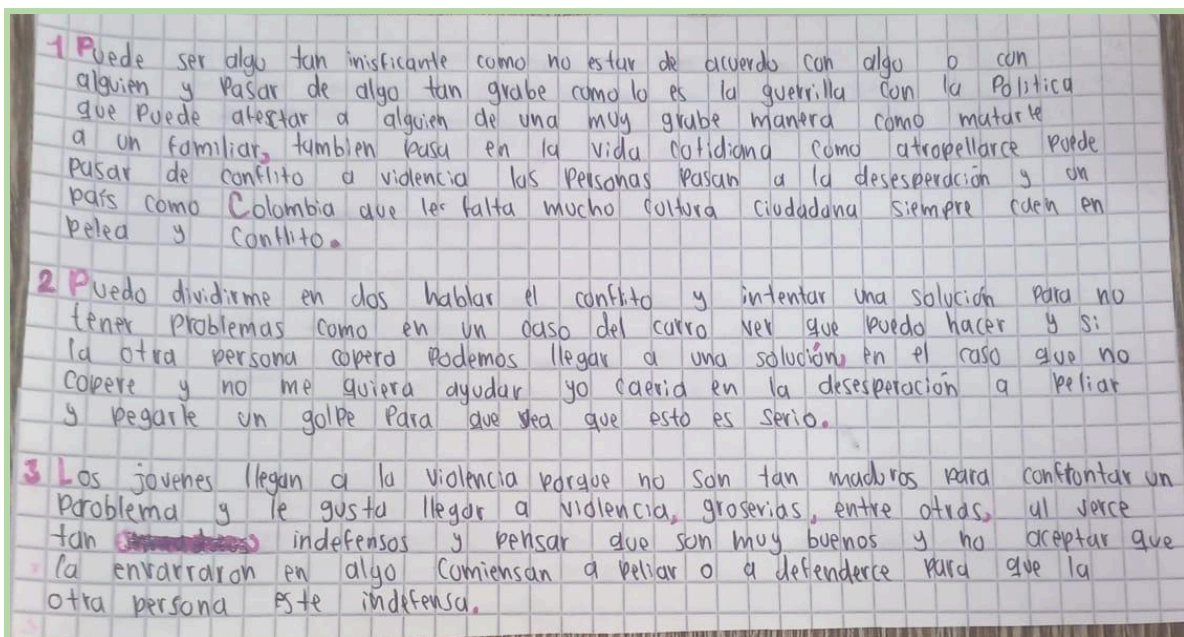 1 Puede ser algo tan inisficante como no estar de acuerdo con algo o con
alguien y Pasar de algo tan grabe como lo es la guerrilla con la Politica
que Puede afestar a alguien de una muy grabe manera como matarle
a un familiar, tambien pasa en la vida cotidiana como atropellarce puede
pasar de conflito a violencia las personas pasan a la desesperación y un
país como Colombia que les falta mucho cultura ciudadana siempre caen en
pelea y conflito.
2 Puedo dividirme en dos hablar el conflito y intentar una solución para no
tener problemas como en un caso del carro ver que puedo hacer y si
la otra persona copera Podemos llegar a una solución, en el caso que no
copere y no me quiera ayudar yo caeria en la desesperación a peliar
y pegarle un golpe Para que vea que esto es serio.
3 Los jovenes llegan a la violencia porque no son tan maduros para confrontar un
Problema y le gusta llegar a violencia, groserias, entre otras, al verce
tan indefensos y pensar que son muy buenos y no aceptar que
la envarraron en algo Comiensan a peliar o a defenderce para que la
otra persona este indefensa.